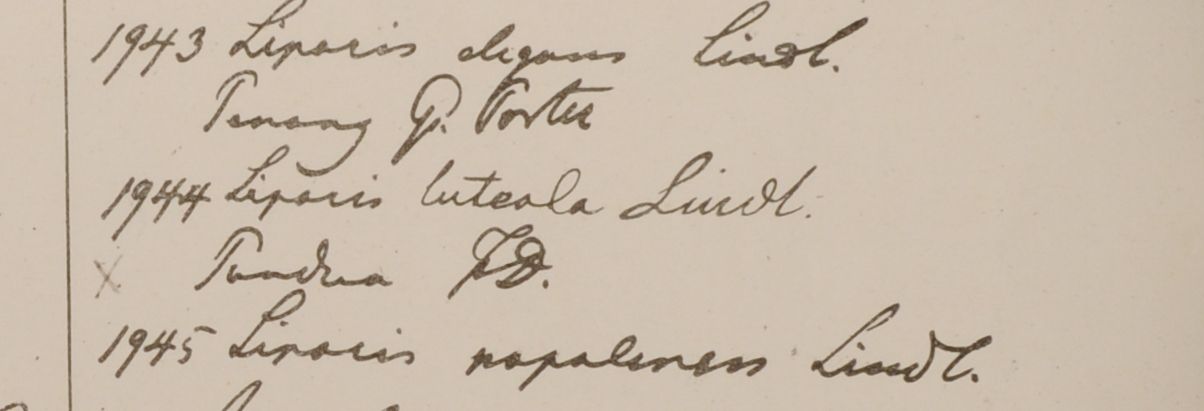 1943 Liparis elegans Lindl.
Penang G. Porter
1944 Liparis luteola Lindl.
X Pundua F.D.
1945 Liparis nepalensis Lindl.